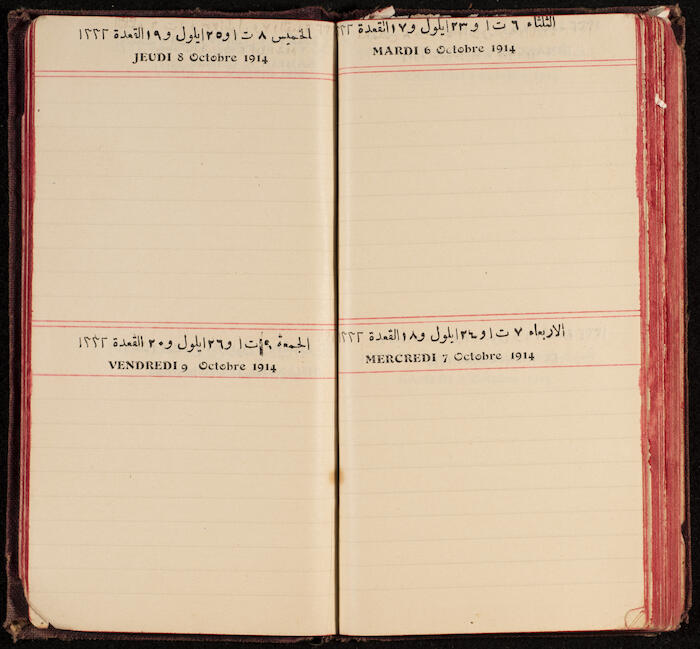 الثلثاء ٦ ت١ و ٢٣ ايلول و ١٧ القعدة
MARDI 6 Octobre 1914
الاربعاء ٧ ت١ و ٢٤ ايلول و ١٨ القعدة ١٣٣٢
MERCREDI 7 Octobre 1914
الخميس ٨ ت١ و ٢٥ ايلول و ١٩ القعدة ١٣٣٢
JEUDI 8 Octobre 1914
الجمعة ٩ ت١ و ٢٦ ايلول و ٢٠ القعدة ١٣٣٢
VENDREDI 9 Octobre 1914